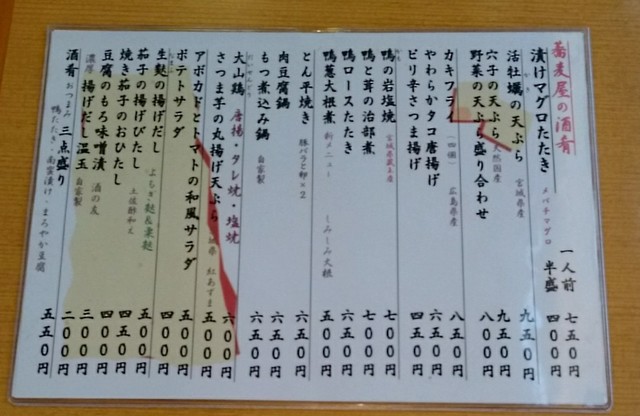 蕎麦屋の酒肴
漬けマグロたたき メバチマグロ 一人前 七五〇円
半盛 四〇〇円
活牡蠣の天ぷら 宮城県産 九五〇円
穴子の天ぷら 天然国産 九五〇円
野菜の天ぷら盛り合わせ 八〇〇円
カキフライ (四個) 広島県産 八五〇円
やわらかタコ唐揚げ 六五〇円
ピリ辛さつま揚げ 四五〇円
鴨の岩塩焼 宮城県蔵王産 七〇〇円
鴨と茸の治部煮 七〇〇円
鴨ロースたたき 六五〇円
鴨葱大根煮 新メニュー しみしみ大根 五〇〇円
とん平焼き 豚バラと卵×2 六五〇円
肉豆腐鍋 六五〇円
もつ煮込み鍋 自家製 六五〇円
大山鶏 唐揚・タレ焼・塩焼 六〇〇円
さつま芋の丸揚げ天ぷら 紅あずま 五五〇円
アボカドとトマトの和風サラダ 五五〇円
ポテトサラダ 四〇〇円
生麩の揚げだし よもぎ麩&粟麩 五〇〇円
茄子の揚げびたし 五〇〇円
焼き茄子のおひたし 土佐酢和え 四五〇円
豆腐のもろ味噌漬 酒の友 四〇〇円
濃厚 揚げだし温玉 自家製 三〇〇円
酒肴 おつまみ 三点盛り 二〇〇円
鴨たたき・南蛮漬け・まろやか豆腐 五五〇円